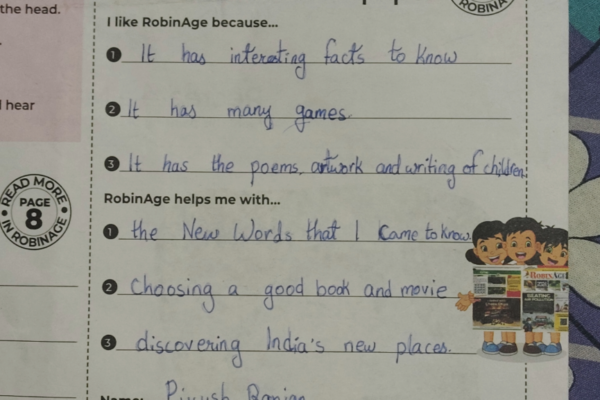 the head.
I like RobinAge because...
1 It has interesting facts to know
hear
2 It has many games.
3 It has the poems, artwork and writing of children.
READ MORE
PAGE
8
IN ROBINAGE
RobinAge helps me with...
1 the New Words that I came to know.
2 Choosing a good book and movie
3 discovering India's new places.
Name: Piyush